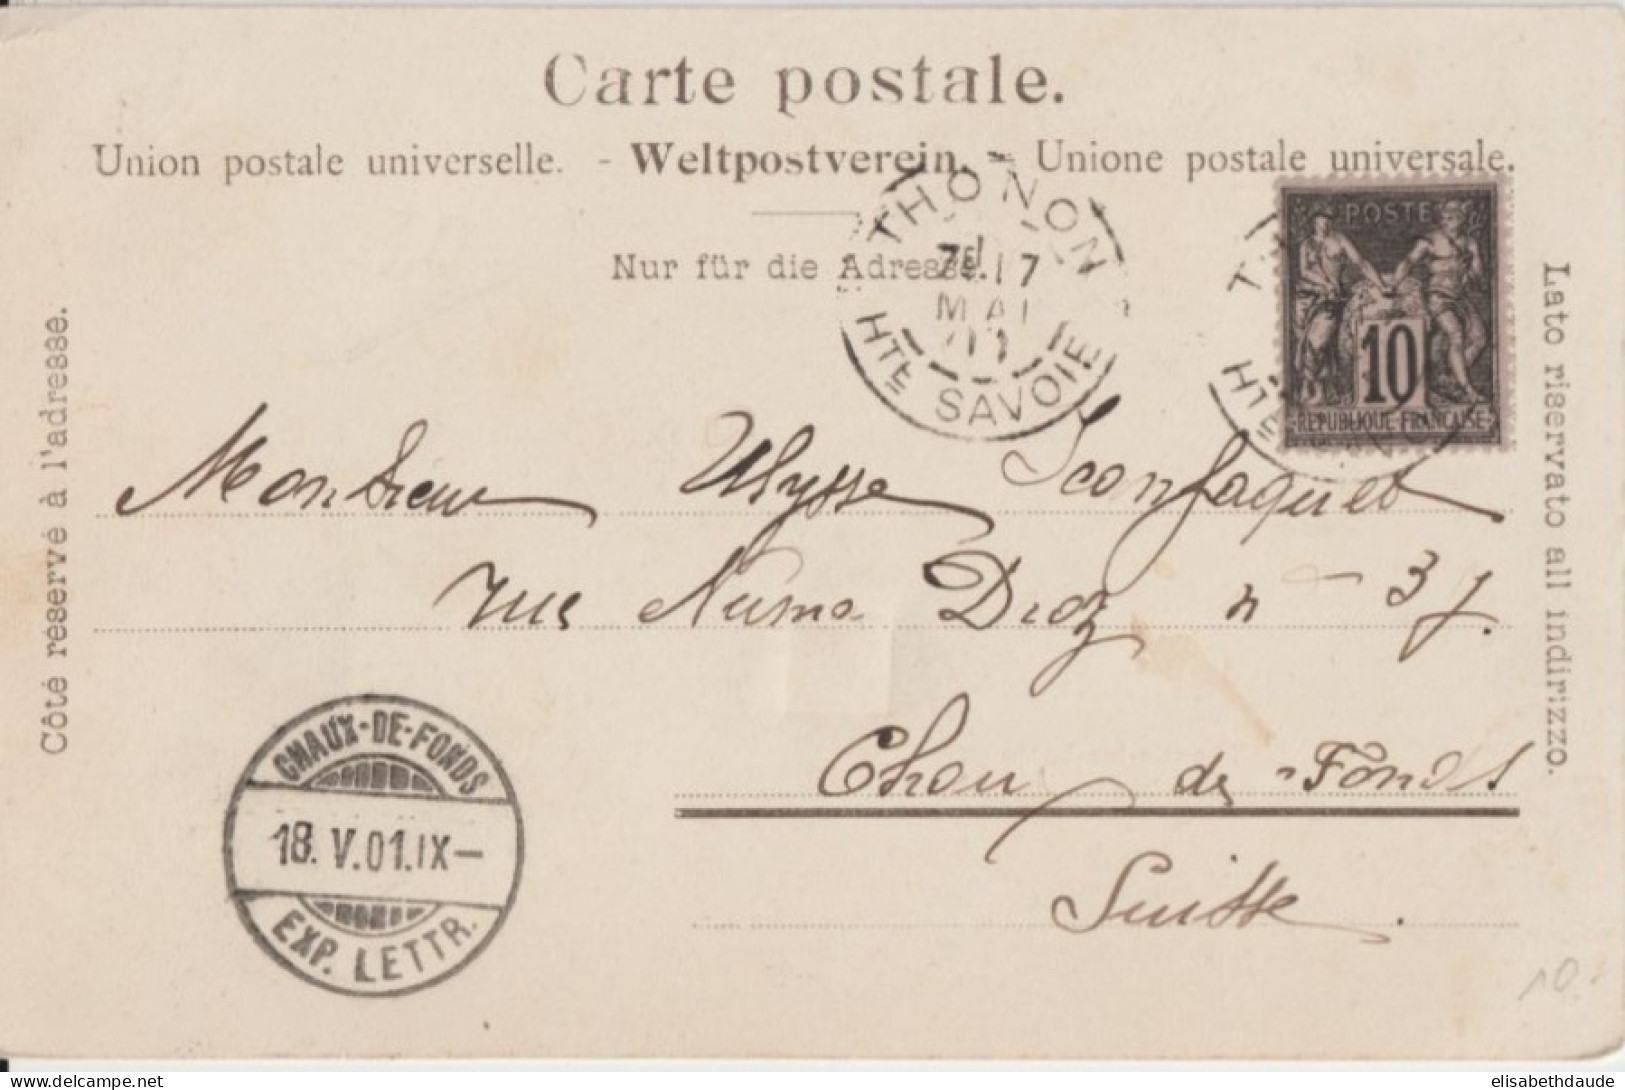 Carte postale.
Union postale universelle. - Weltpostverein. - Unione postale universale.
Nur für die Adresse.
Côté reservé à l'adresse.
Lato riservato all indirizzo.
THONON
17
MAI
HTE SAVOIE
POSTE
10
REPUBLIQUE FRANÇAISE
Monsieur Ulysse Jeanjaquet
rue Numa Droz n - 37.
Chau de -Fonds
Suisse.
CHAUX-DE-FONDS
18. V.01.IX-
EXP. LETTR.
10.
elisabethdaude